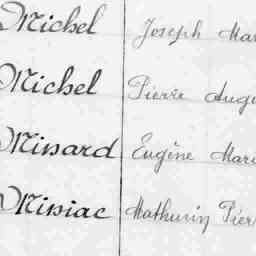 Michel Joseph Mar
Michel Pierre Augu
Minard Eugène Mari
Miniac Mathurin Pier